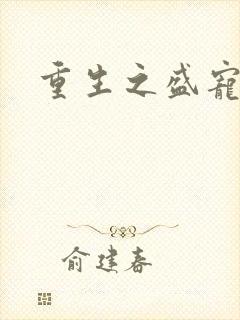 重生之盛宠
俞建春